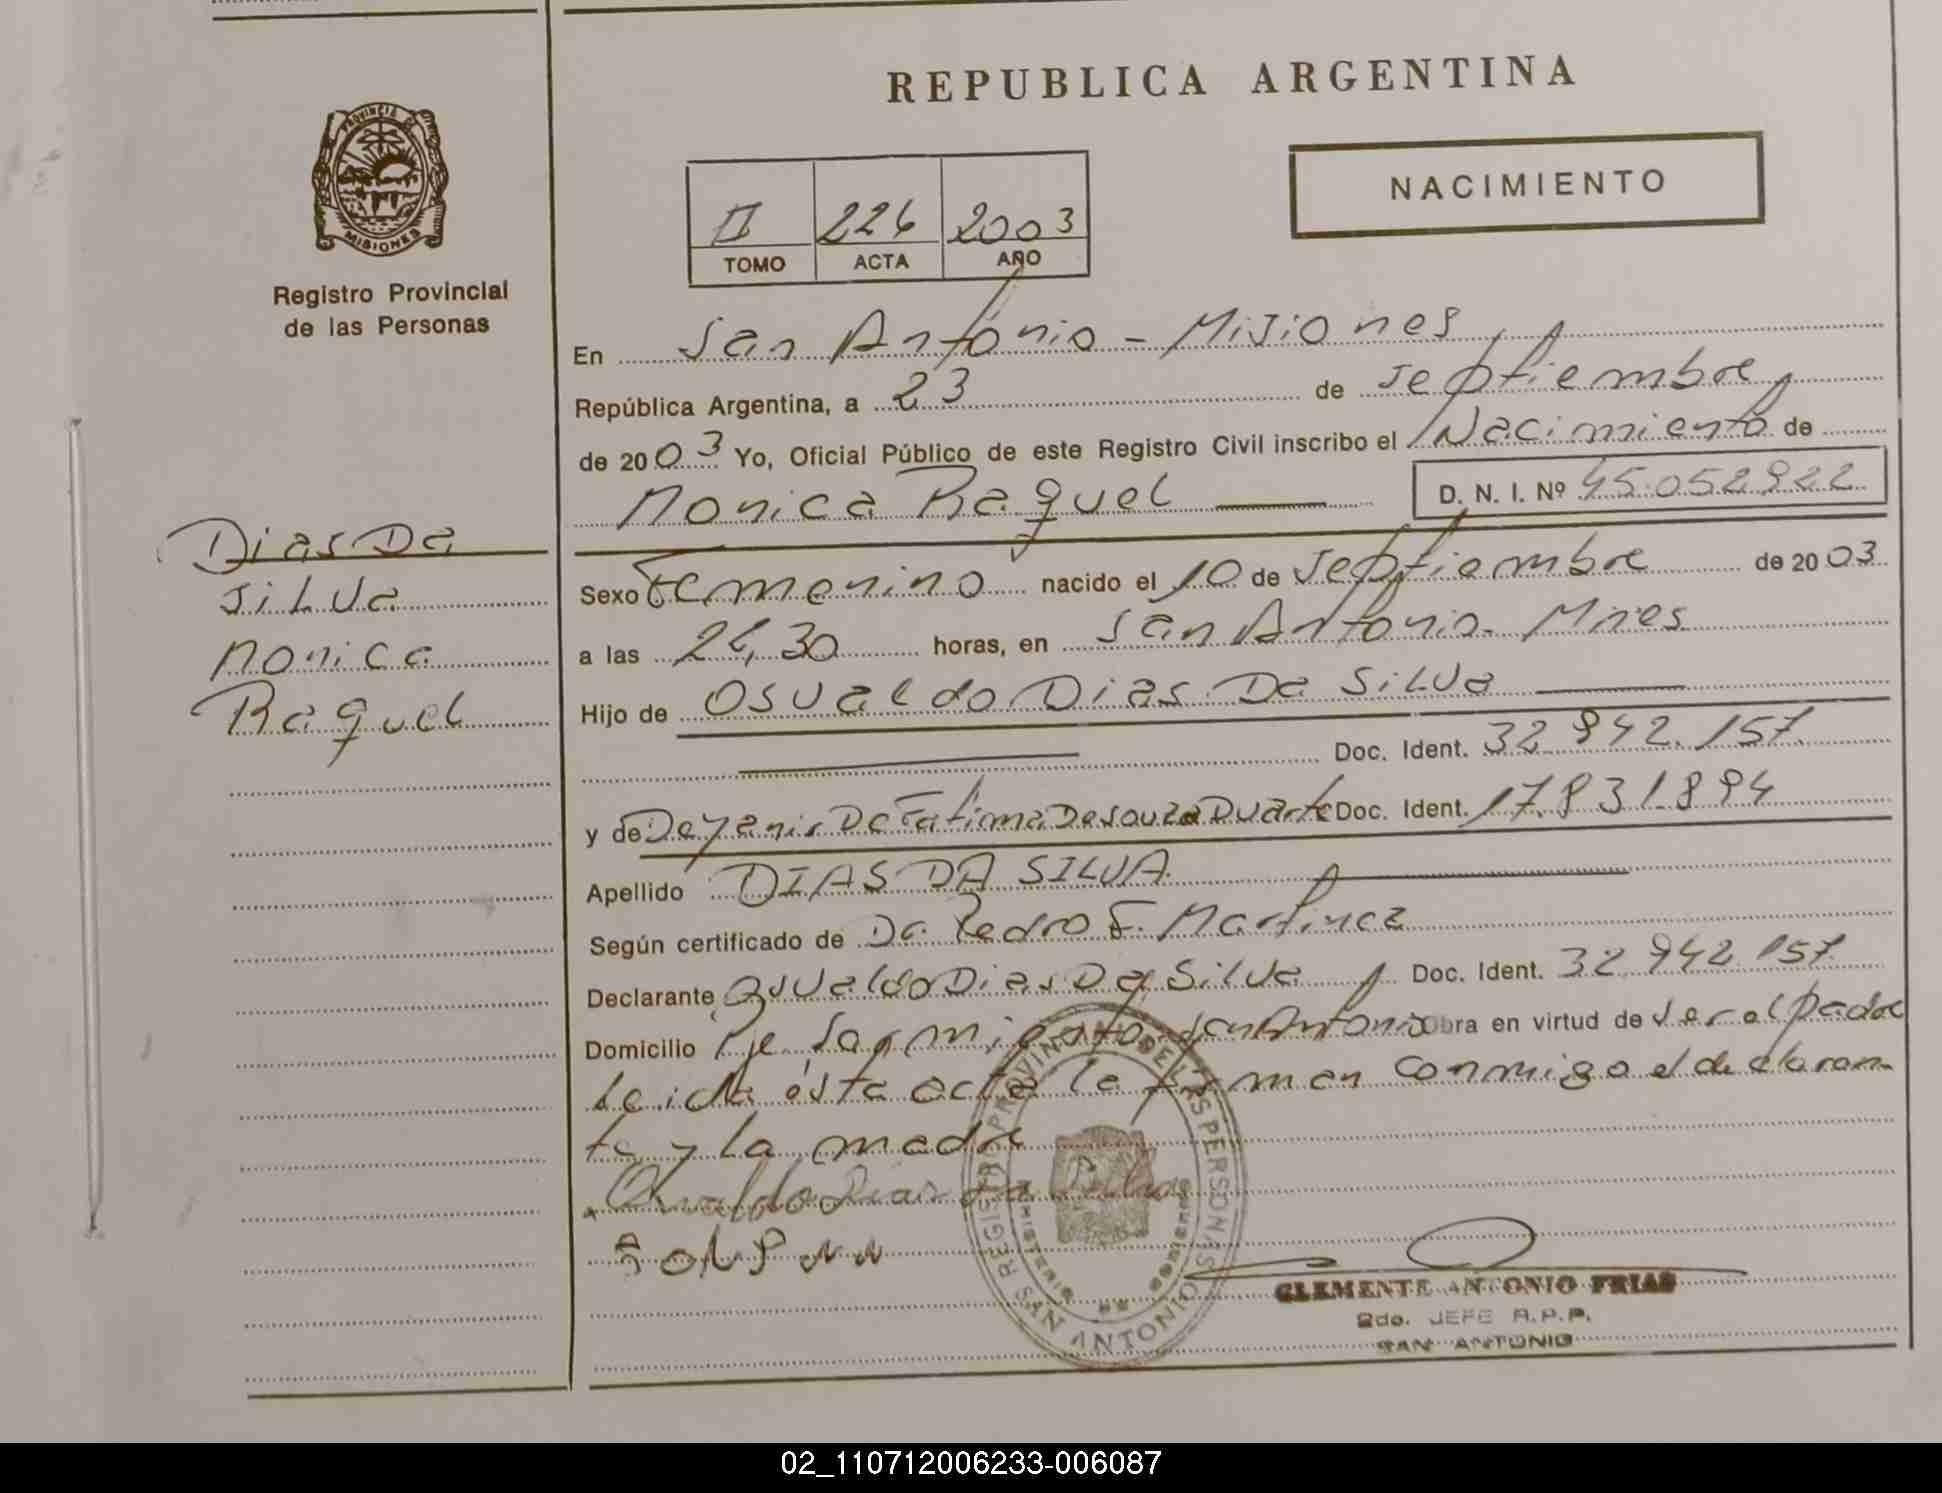 REPUBLICA ARGENTINA
NACIMIENTO
PROVINCIA DE MISIONES
Registro Provincial
de las Personas
II 226 2003
TOMO ACTA AÑO
En San Antonio - Misiones
República Argentina, a 23 de septiembre
de 2003 Yo, Oficial Público de este Registro Civil inscribo el Nacimiento de
Monica Raquel D. N. I. Nº 45.052922
Dias Da
Silva
Monica
Raquel
Sexo Femenino nacido el 10 de septiembre de 2003
a las 21,30 horas, en San Antonio - Mnes
Hijo de Osvaldo Dias Da Silva
Doc. Ident. 32 942.157
y de Deyanir De Fatima De souza Duarte Doc. Ident. 17.831.894
Apellido DIAS DA SILVA
Según certificado de Dr. Pedro F. Martinez
Declarante Osvaldo Dias Da Silva Doc. Ident. 32 942 157
Domicilio Pje. Sarmiento - San Antonio Obra en virtud de ser el padre
Leida ésta acta la firman conmigo el declaran
te y la madre
Osvaldo Dias Da Silva
REGISTRO PROVINCIAL DE LAS PERSONAS
MINISTERIO DE GOBIERNO
SAN ANTONIO
CLEMENTE ANTONIO FRIAS
2do. JEFE R.P.P.
SAN ANTONIO
02_110712006233-006087